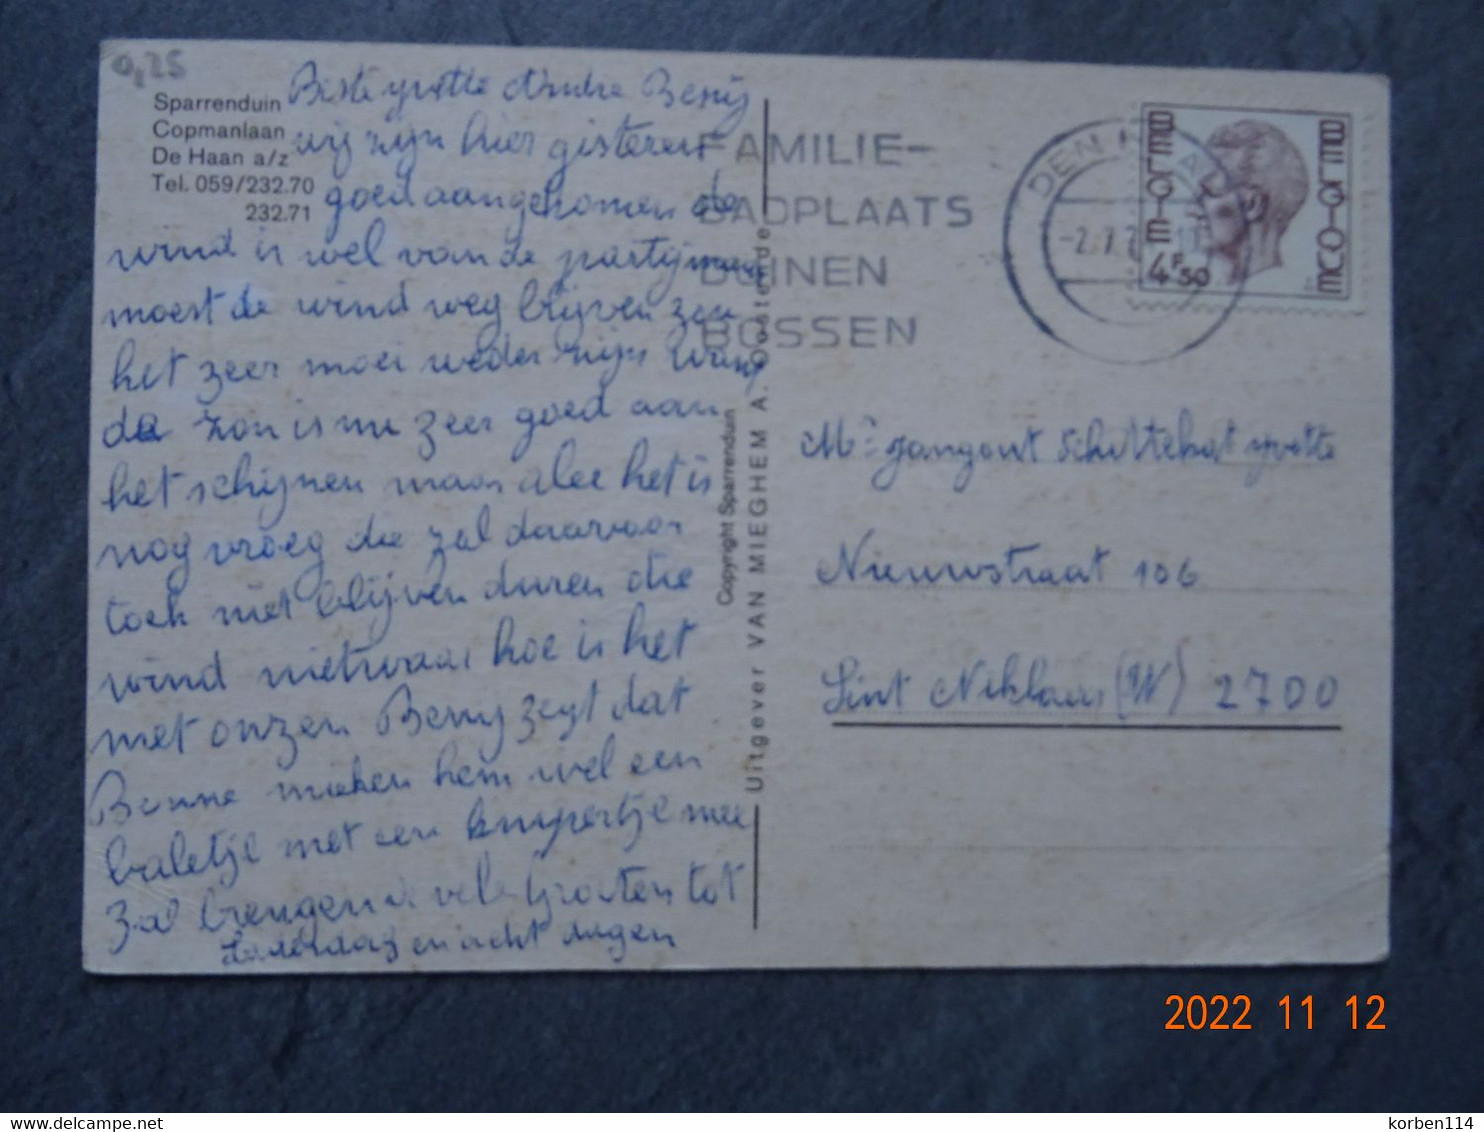 0,25
Sparrenduin
Copmanlaan
De Haan a/z
Tel. 059/232.70
232.71
Beste yvette Andre Benny
wij zijn hier gisteren
goed aangekomen de
wind is wel van de partij maar
moest de wind weg blijven zou
het zeer mooi weder zijn want
de zon is nu zeer goed aan
het schijnen maar alee het is
nog vroeg die zal daarvoor
toch niet blijven duren die
wind nietwaar hoe is het
met onzen Benny zegt dat
Bonne hem wel een
baletje met een kmpertje mee
zal brengen vele Groeten tot
Zaterdag en acht dagen
FAMILIE-
BADPLAATS
DUINEN
BOSSEN
DEN HAAN
-2.7.7
BELGIE
BELGIQUE
4F50
Uitgever VAN MIEGHEM A. Oostende
Copyright Sparrenduin
Mr jangout Schittekat yvette
Nieuwstraat 106
Sint Niklaas (W) 2700
2022 11 12
delcampe.net
korben114